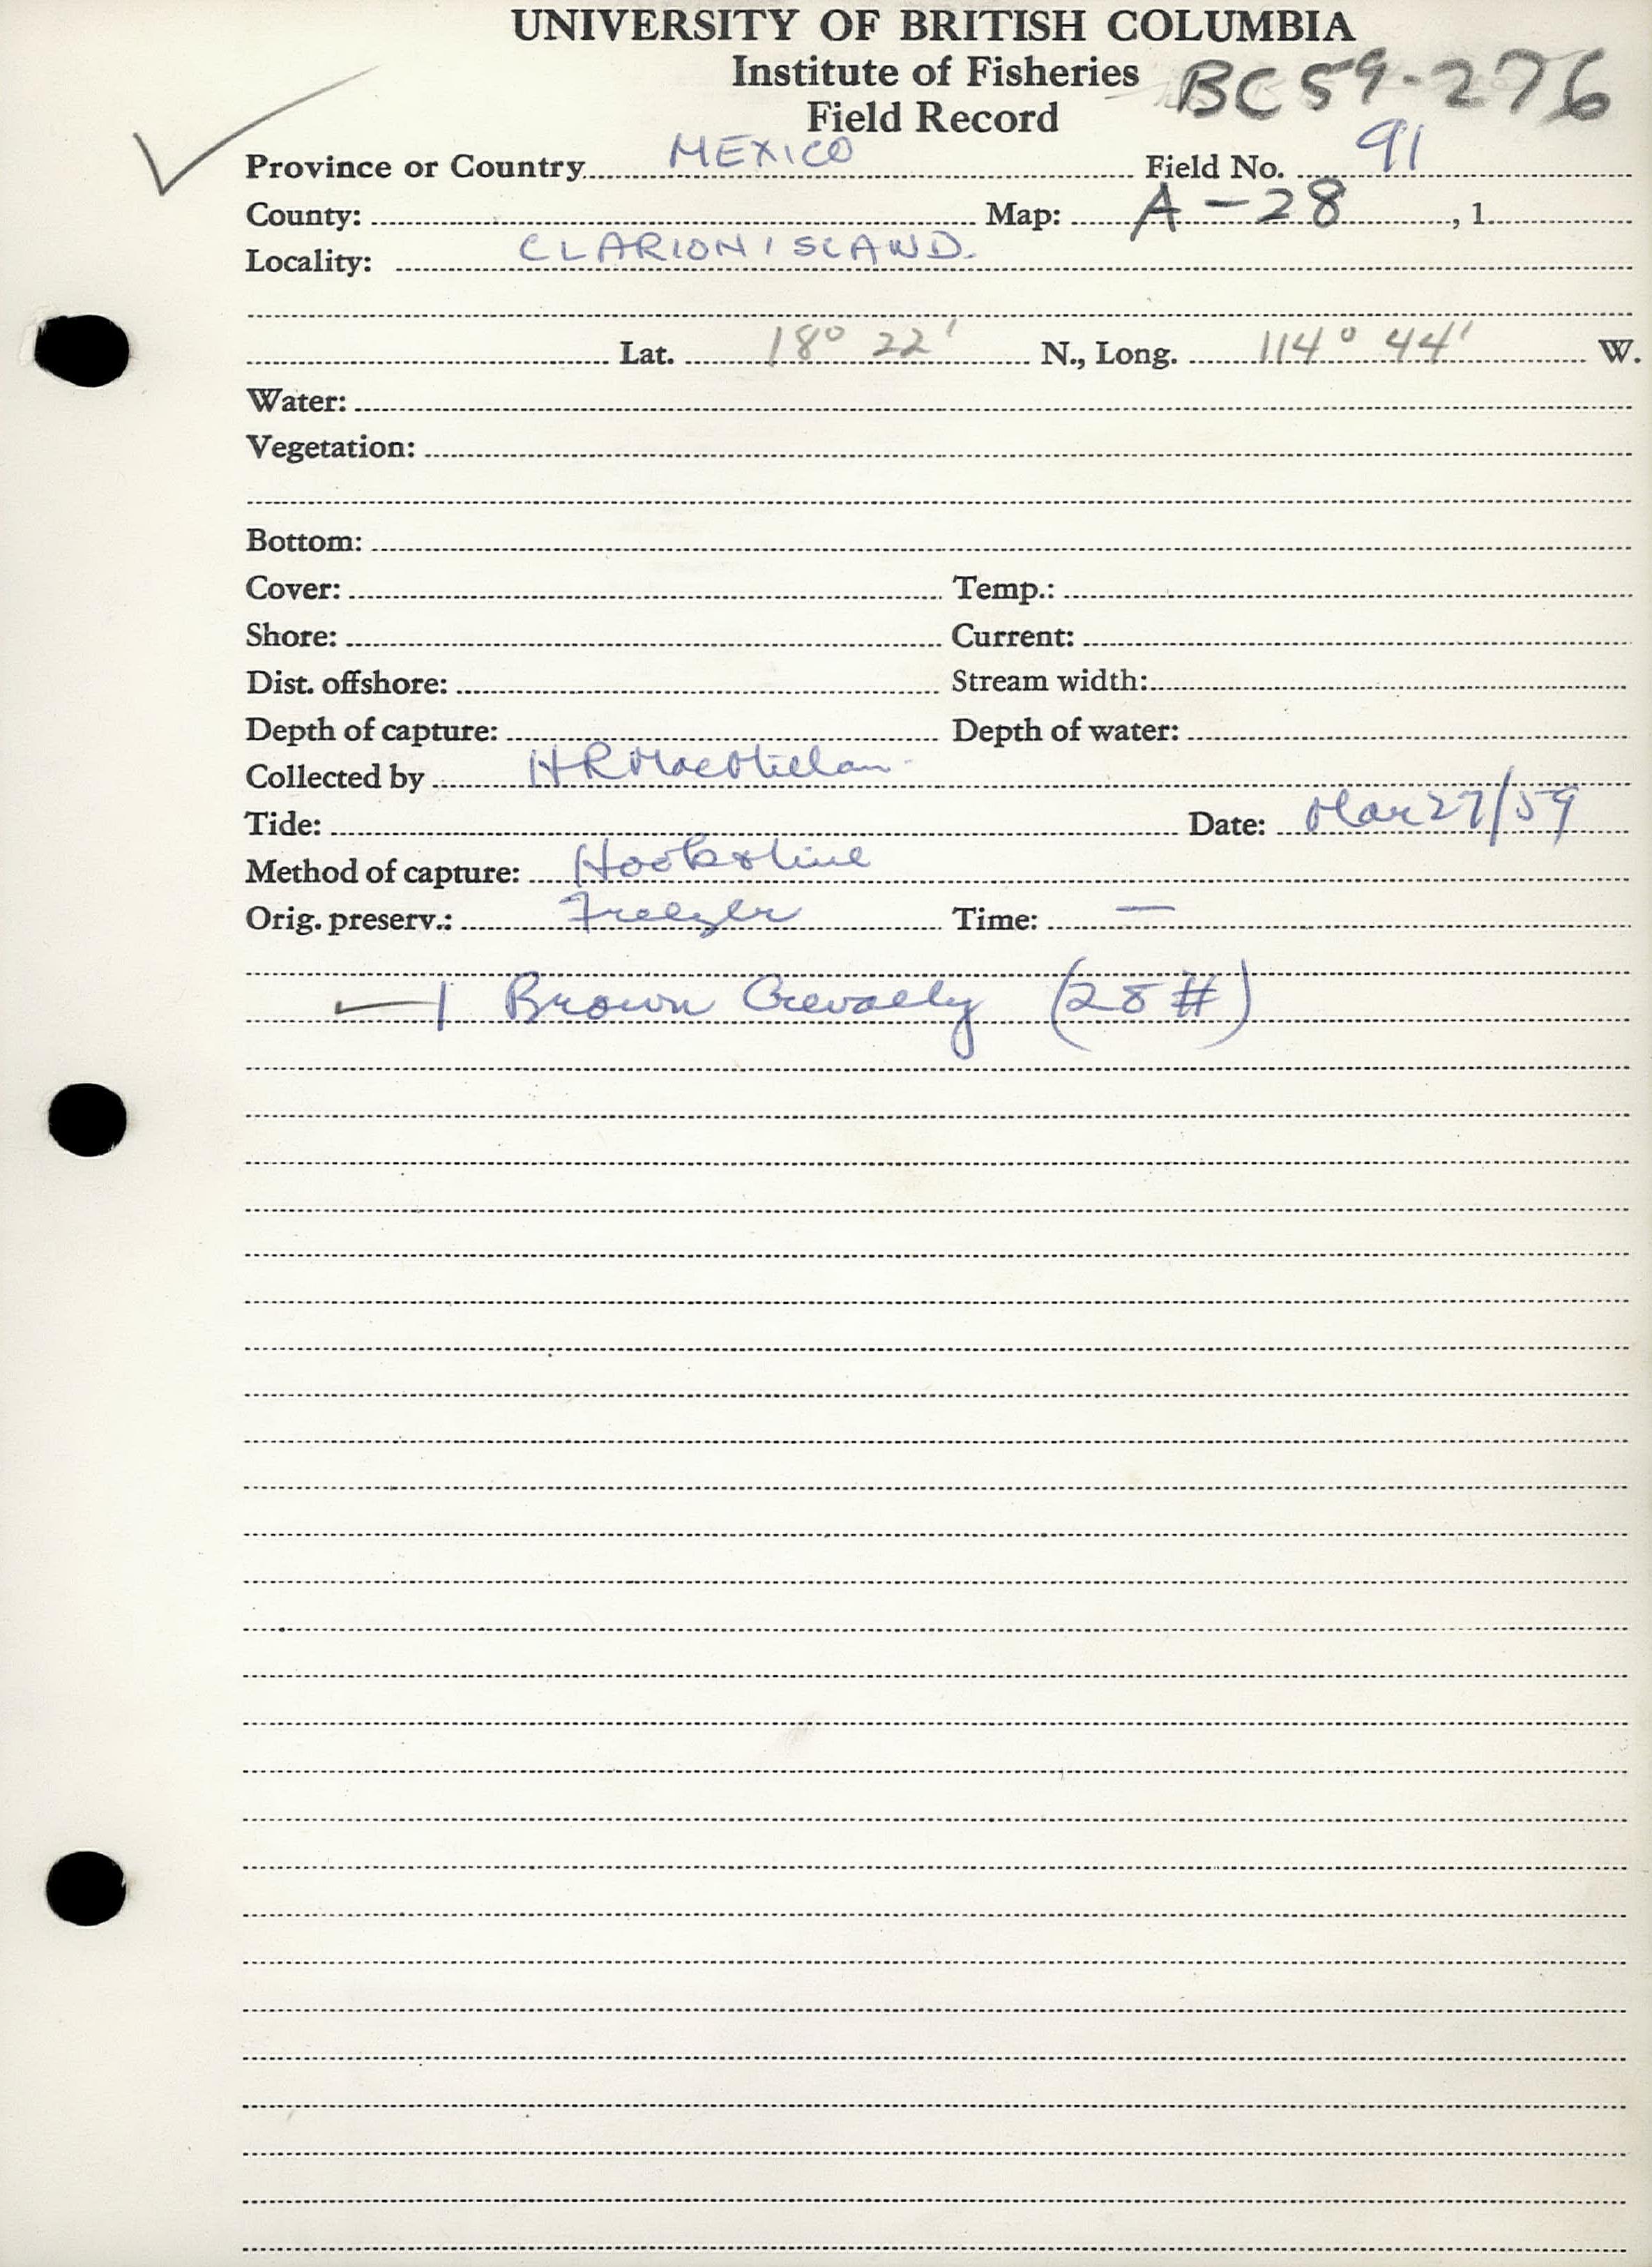 UNIVERSITY OF BRITISH COLUMBIA
Institute of Fisheries
Field Record
BC59-276
Province or Country MEXICO Field No. 91
County: Map: A-28, 1
Locality: CLARION ISLAND.
Lat. 18° 22' N., Long. 114° 44' W.
Water:
Vegetation:
Bottom:
Cover: Temp.:
Shore: Current:
Dist. offshore: Stream width:
Depth of capture: Depth of water:
Collected by HRMacMillan
Tide: Date: Mar 27/59
Method of capture: Hook & line
Orig. preserv.: Freezer Time: —
1 Brown Crevally (28#)